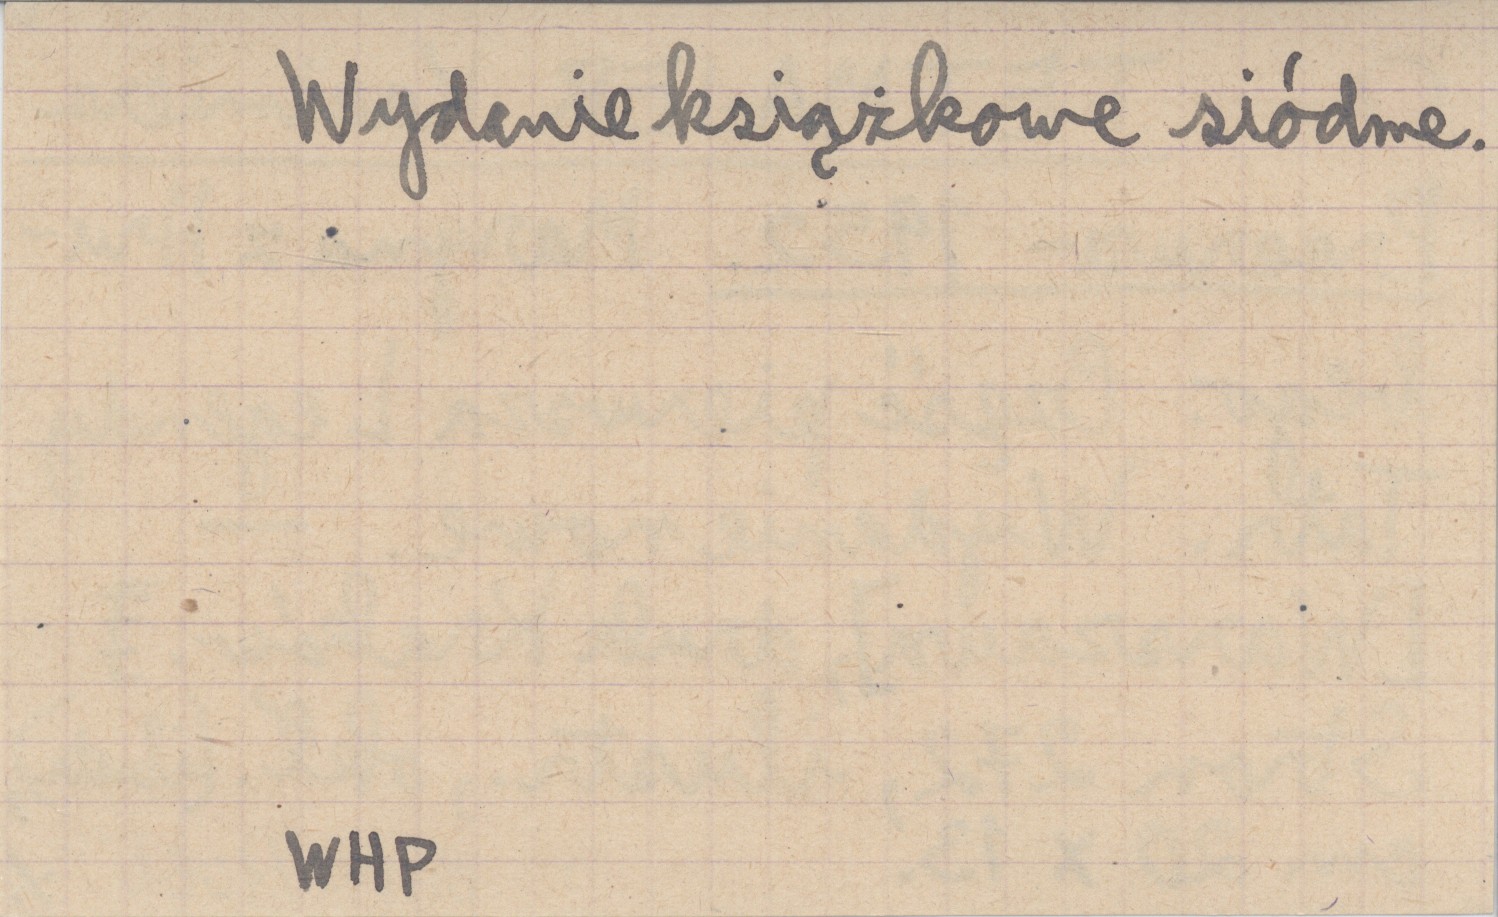 Wydanie książkowe siódme.
WHP